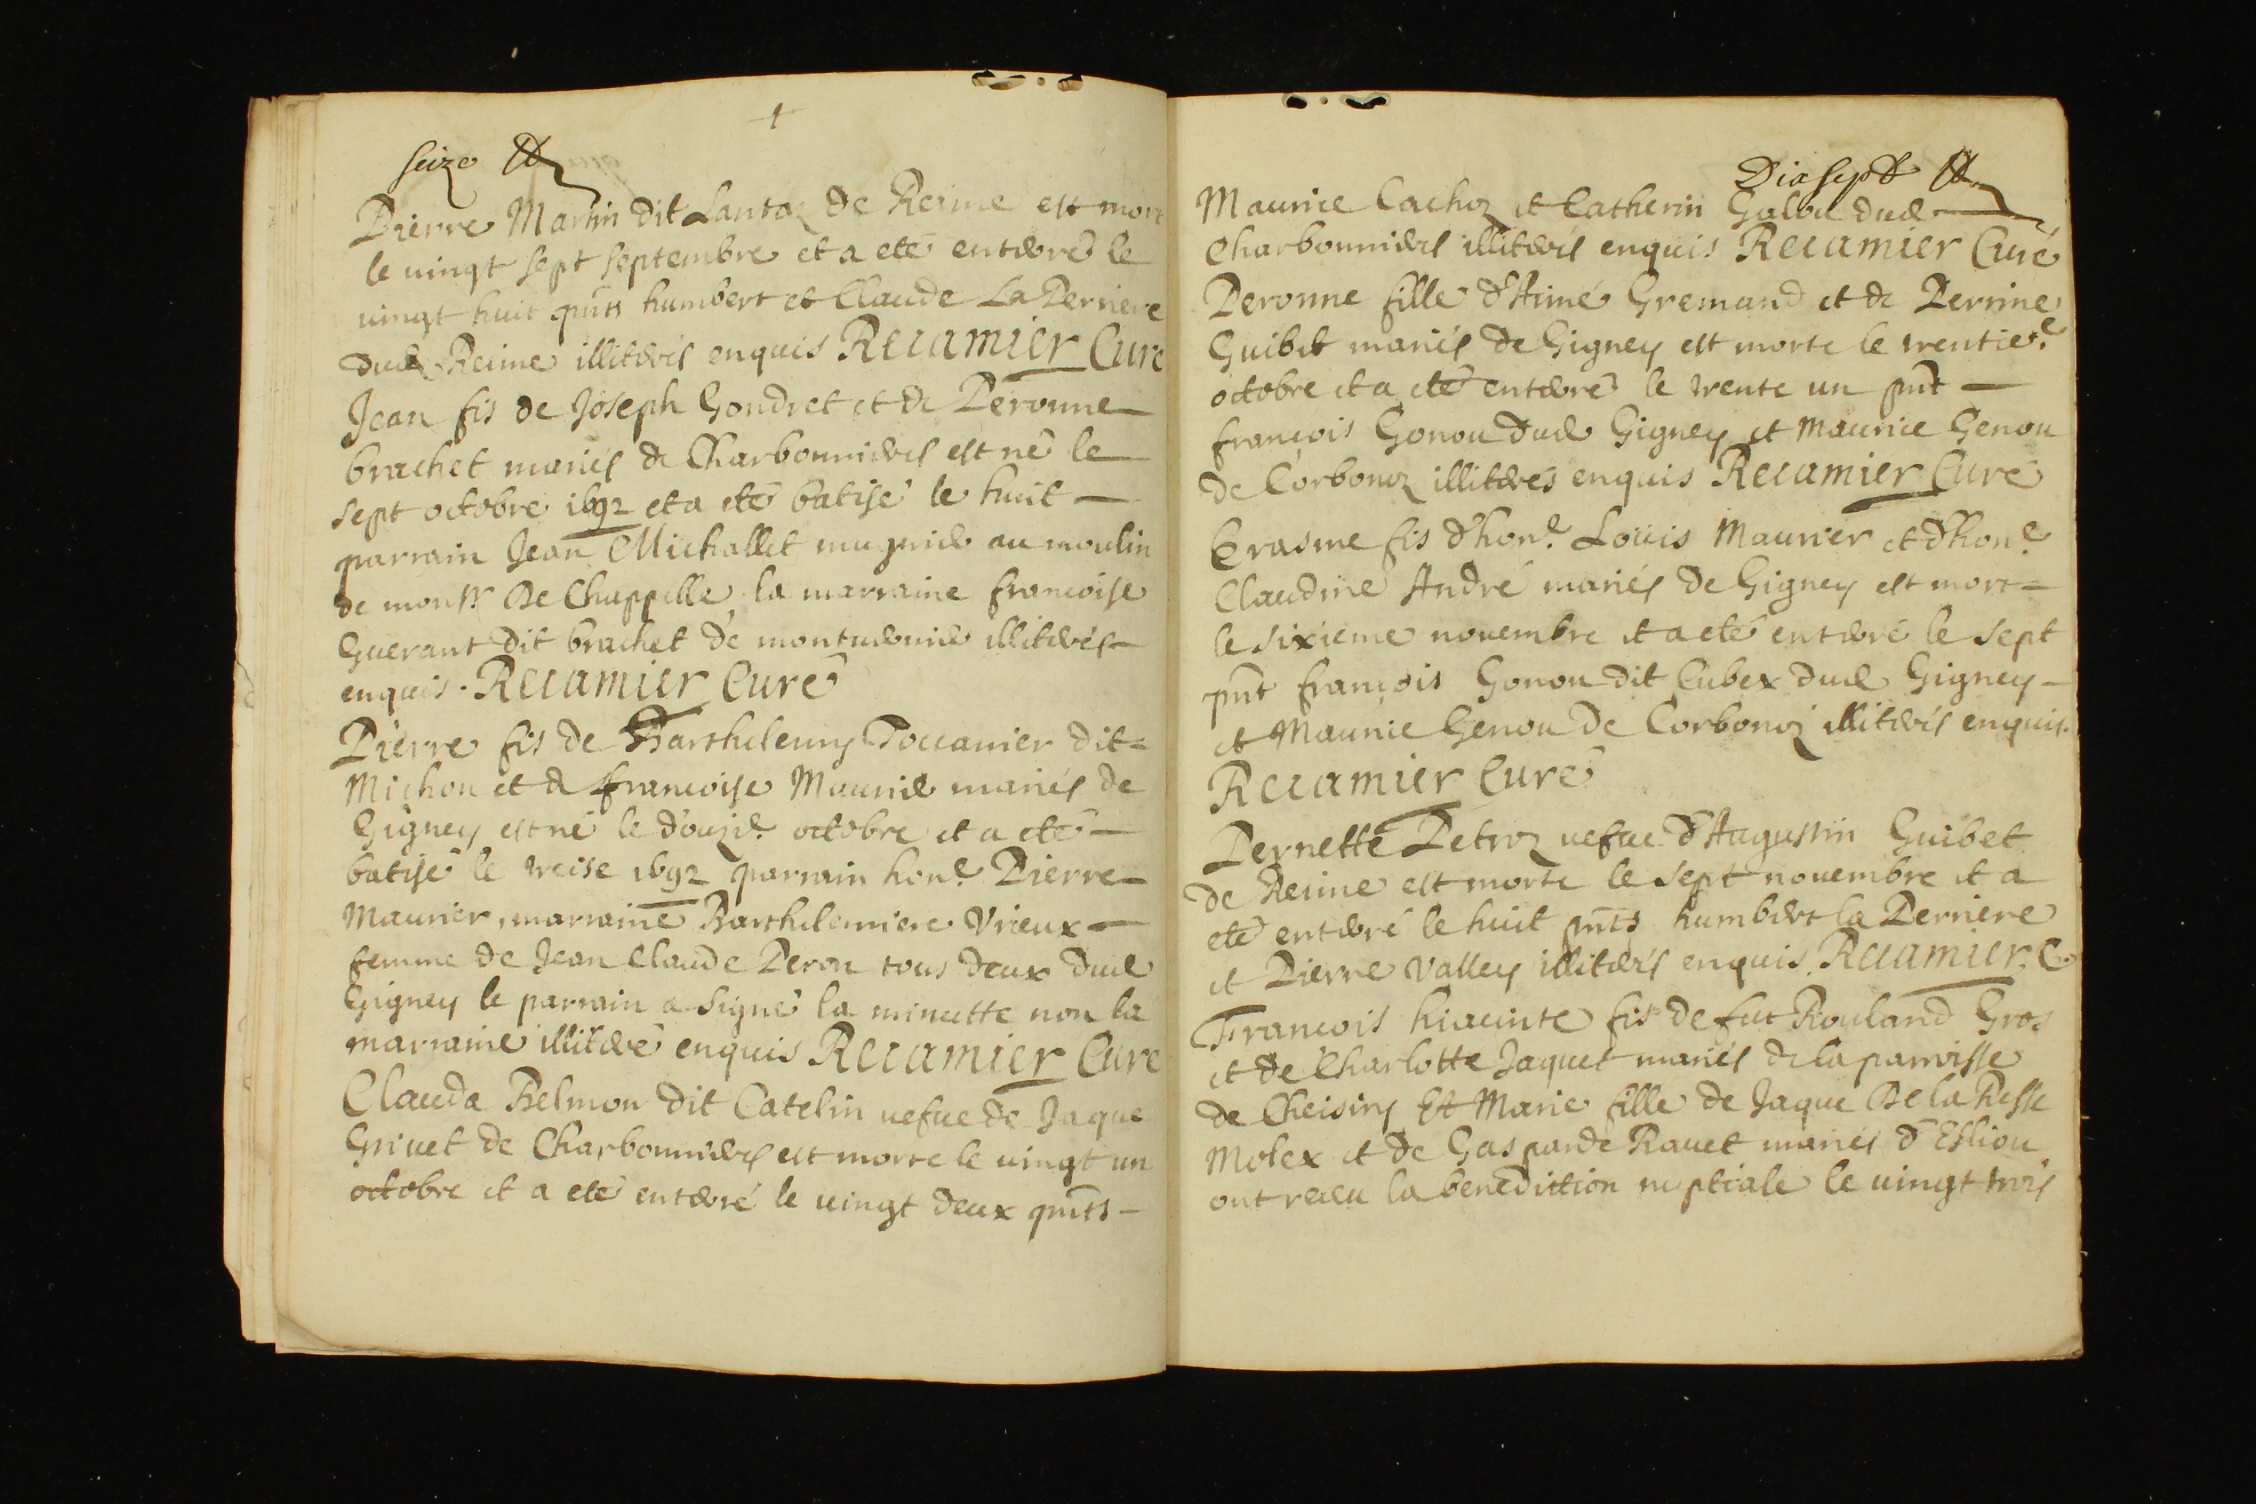 seize
Pierre Martin dit Lantaz de Reime est mort
le uingt sept septembre et a eté enterré le
uingt huit pnts humbert et Claude La Perriere
dud Reime illiterés enquis Recamier Curé
Jean fis de Joseph Gondret et de Peronne
brachet mariés de Charbonnieres est né le
sept octobre 1692 et a eté batisé le huit
parrain Jean Michallet mugnier au moulin
de monsr De Chappelle la marraine francoise
Guerant dit brachet de illiterés
enquis. Recamier Curé
Pierre fis de Barthelemy Toccanier dit
Michon et de francoise Maurier mariés de
Gigney est né le douzie octobre et a eté
batisé le treise 1692 parrain hone Pierre
Maurier, marraine Barthelemiere Vrieux
femme de Jean Claude Peron tous deux dud
Gigney le parrain a signé la minutte non la
marraine illiteré enquis Recamier Curé
Clauda Belmon dit Catelin uefue de Jaque
Griuet de Charbonnieres est morte le uingt un
octobre et a eté enterré le uingt deux pnts
Dixsept
Maurice Cachoz et Catherin Galoz dud
Charbonnieres illiterés enquis Recamier Curé
Peronne fille d'Aimé Gremand et de Perrine
Guibet mariés de Gigney est morte le trentiee
octobre et a eté enterré le trente un pnt
françois Gonou dud Gigney et Maurice Genou
de Corbonoz illiterés enquis Recamier Curé
Erasme fis d'hone Loüis Maurier et d'hone
Claudine André mariés de Gigney est mort
le sixieme nouembre et a eté enterré le sept
pnt françois Gonou dit Cubex dud Gigney
et Maurice Genou de Corbonoz illiterés enquis.
Recamier Curé
Pernette Petroz uefue d'Augustin Guibet
de Reime est morte le sept nouembre et a
eté enterré le huit pnts humbert la Perriere
et Pierre Valley illiterés enquis Recamier C.
François hiacinte fis de fut Rouland Gros
et de Charlotte Jaquet mariés de la parroisse
de Cheisiry Et Marie fille de Jaque De la
Molex et de Gasparde Rauet mariés d'Esliou
ont receu la benediction nuptiale le uingt trois